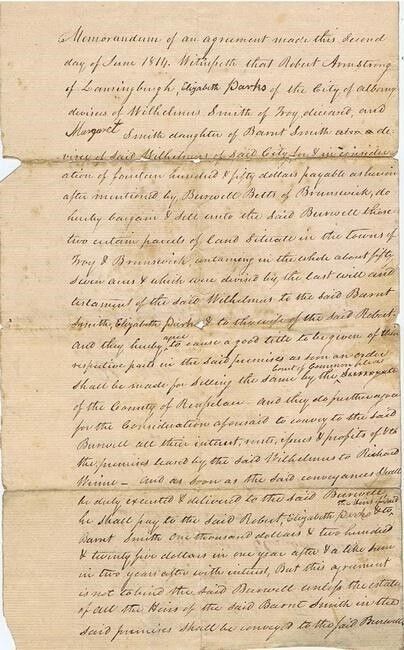 Memorandum of an agreement made this Second
day of June 1814. Witnesseth that Robert Armstrong
of Lansingburgh, Elizabeth Parks of the City of albany
devisees of Wilhelmus Smith of Troy, deceased, and
Margaret
Smith daughter of Barnt Smith also a de-
visee of said Wilhelmus of said City for & in consider-
ation of fourteen hundred & fifty dollars payable as herein
after mentioned by Burwell Betts of Brunswick, do
hereby bargain & Sell unto the Said Burwell those
two certain parcels of land Situate in the towns of
Troy & Brunswick containing in the whole about fifty
Seven acres & which were devised by the last will and
testament of the said Wilhelmus to the said Barnt
Smith, Elizabeth Parks & to the wife of the said Robert.
And they hereby agree to cause a good title to be given of their
respective parts in the said premises as soon an order
Court of Common pleas
Shall be made for Selling the same by the Surrogate
of the County of Rensselaer - And they do further agree
for the Consideration aforesaid to convey to the said
Burwell all their interest, rents, issues & profits of
the premises leased by the said Wilhelmus to Richard
- And as soon as the said conveyances Shall
be duly executed & delivered to the Said Burwell
he shall pay to the said Robert, Elizabeth Parks &
the heirs of said
Barnt Smith One thousand dollars & two hundred
& twenty five dollars in one year after & a like sum
in two years after with interest, But this agreement
is not to bind the said Burwell unless the estate
of all the Heirs of the said Barnt Smith in the
said premises shall be conveyed to the said Burwell